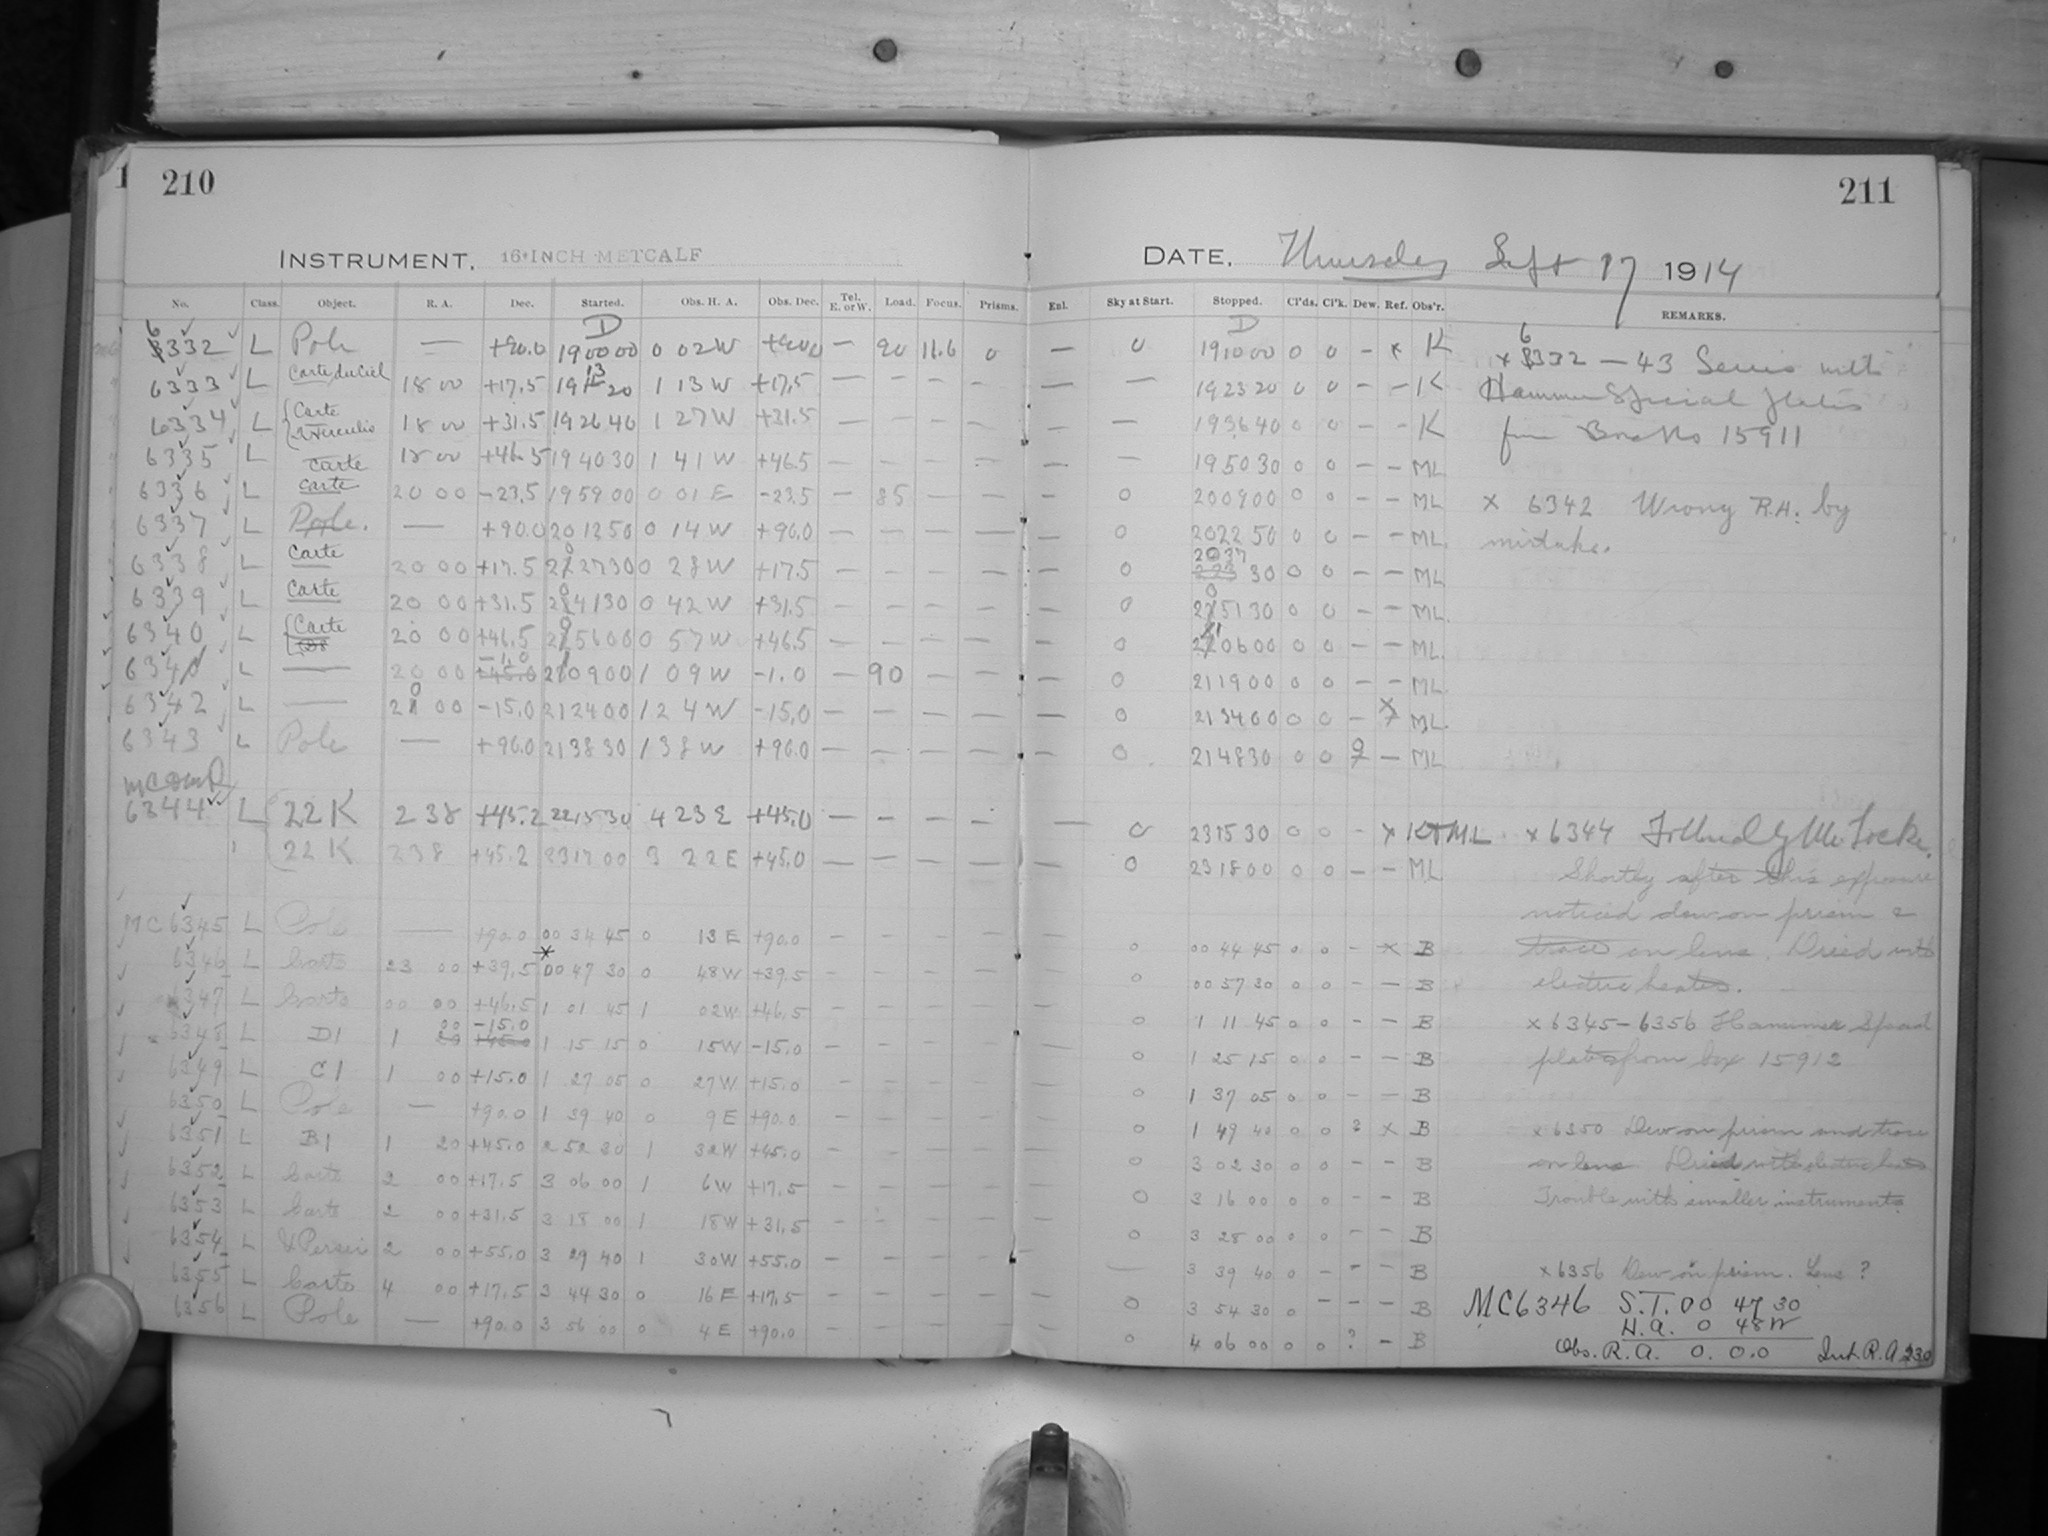 210
211
INSTRUMENT. 16-INCH METCALF
DATE. Thursday Sept 17 1914
No. Class. Object. R. A. Dec. Started. Obs. H. A. Obs. Dec. Tel. E. or W. Load. Focus. Prisms. Enl. Sky at Start. Stopped. Cl'ds. Cl'k. Dew. Ref. Obs'r. REMARKS.
D D
6332 L Pole — +90.0 19 00 00 0 02 W +90.0 — 90 11.6 0 — 0 19 10 00 0 0 - x K x 6332 — 43 Series with
6333 L Carte du Ciel 18 00 +17.5 19 13 20 1 13 W +17.5 — — — — — — 19 23 20 0 0 - - K Hammer Special Plates
6334 L Carte 18 00 +31.5 19 26 40 1 27 W +31.5 — — — — — — 19 36 40 0 0 - - K from Box No 15911
6335 L Carte 18 00 +46.5 19 40 30 1 41 W +46.5 — — — — — — 19 50 30 0 0 - - ML
6336 L Carte 20 00 -23.5 19 59 00 0 01 E -23.5 — 85 — — — 0 20 09 00 0 0 - - ML x 6342 Wrong R.A. by
6337 L Pole. — +90.0 20 12 50 0 14 W +90.0 — — — — — 0 20 22 50 0 0 - - ML mistake.
6338 L Carte 20 00 +17.5 20 27 30 0 28 W +17.5 — — — — — 0 20 37 30 0 0 - - ML
6339 L Carte 20 00 +31.5 20 41 30 0 42 W +31.5 — — — — — 0 20 51 30 0 0 - - ML
6340 L Carte 20 00 +46.5 20 56 00 0 57 W +46.5 — — — — — 0 21 06 00 0 0 - - ML
6341 L — 20 00 -1.0 21 09 00 1 09 W -1.0 — 90 — — — 0 21 19 00 0 0 - - ML
6342 L — 20 00 -15.0 21 24 00 1 24 W -15.0 — — — — — 0 21 34 00 0 0 - x ML
6343 L Pole — +90.0 21 38 30 1 38 W +90.0 — — — — — 0 21 48 30 0 0 ? - ML
6344 L 22 K 2 38 +45.2 22 15 30 4 23 E +45.0 — — — — — 0 23 15 30 0 0 - x K+ML x 6344 Followed by Mr Locke.
22 K 2 38 +45.2 23 17 00 3 22 E +45.0 — — — — — 0 23 18 00 0 0 - - ML Shortly after this exposure
noticed dew on prism &
MC 6345 L Pole — +90.0 00 34 45 0 13 E +90.0 — — — — — 0 00 44 45 0 0 - x B trace on lens. Dried with
6346 L Carte 23 00 +39.5 * 00 47 30 0 48 W +39.5 — — — — — 0 00 57 30 0 0 - - B electric heater.
6347 L Carte 00 00 +46.5 1 01 45 1 02 W +46.5 — — — — — 0 1 11 45 0 0 - - B x 6345–6356 Hammer Special
6348 L D1 1 00 -15.0 1 15 15 0 15 W -15.0 — — — — — 0 1 25 15 0 0 - - B plates from box 15912
6349 L C1 1 00 +15.0 1 27 05 0 27 W +15.0 — — — — — 0 1 37 05 0 0 - - B
6350 L Pole — +90.0 1 39 40 0 9 E +90.0 — — — — — 0 1 49 40 0 0 ? x B x 6350 Dew on prism and trace
6351 L B1 1 20 +45.0 2 52 30 1 32 W +45.0 — — — — — 0 3 02 30 0 0 - - B on lens. Dried with electric heater
6352 L Carte 2 00 +17.5 3 06 00 1 6 W +17.5 — — — — — 0 3 16 00 0 0 - - B Trouble with smaller instruments
6353 L Carte 2 00 +31.5 3 18 00 1 18 W +31.5 — — — — — 0 3 28 00 0 0 - - B
6354 L Persei 2 00 +55.0 3 29 40 1 30 W +55.0 — — — — — — 3 39 40 0 - - - B x 6356 Dew on prism. Lens ?
6355 L Carte 4 00 +17.5 3 44 30 0 16 E +17.5 — — — — — 0 3 54 30 0 - - - B MC6346 S.T. 00 47 30
6356 L Pole — +90.0 3 56 00 0 4 E +90.0 — — — — — 0 4 06 00 0 0 ? - B H.A. 0 48 W
Obs. R.A. 0. 0.0 Int. R.A. 23.0